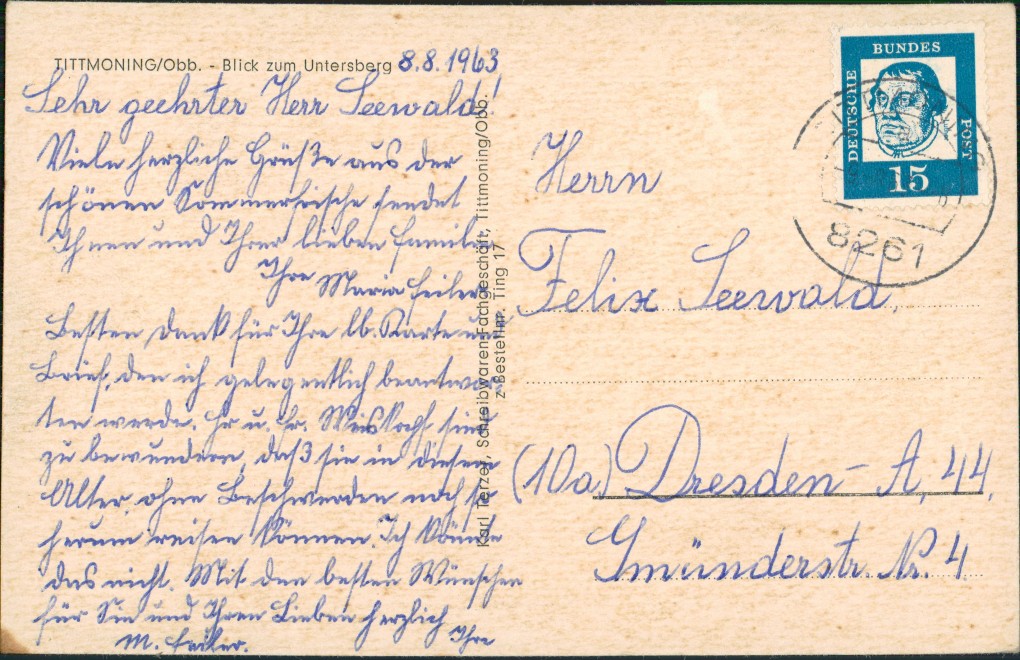 TITTMONING/Obb. - Blick zum Untersberg
8.8.1963
Sehr geehrter Herr Seewald!
Viele herzliche Grüße aus der
schönen Sommerfrische sendet
Ihnen und Ihrer lieben Familie
Ihre Maria Feiler.
Besten Dank für Ihre lb. Karte und
Brief, den ich gelegentlich beantwor-
ten werde. Hr u. Fr. sind
zu bewundern, daß sie in diesem
Alter, ohne Beschwerden noch so
herum reisen können. Ich könnte
das nicht. Mit den besten Wünschen
für Sie und Ihren Lieben herzlich
Ihre
M. Feiler.
Karl Terzer, Schreibwaren-Fachgeschäft, Tittmoning/Obb.
z-Bestellnr. Ting 17
DEUTSCHE
BUNDES
POST
15
8261
Herrn
Felix Seewald,
(10a) Dresden - A, 44,
Gmünderstr. Nr. 4